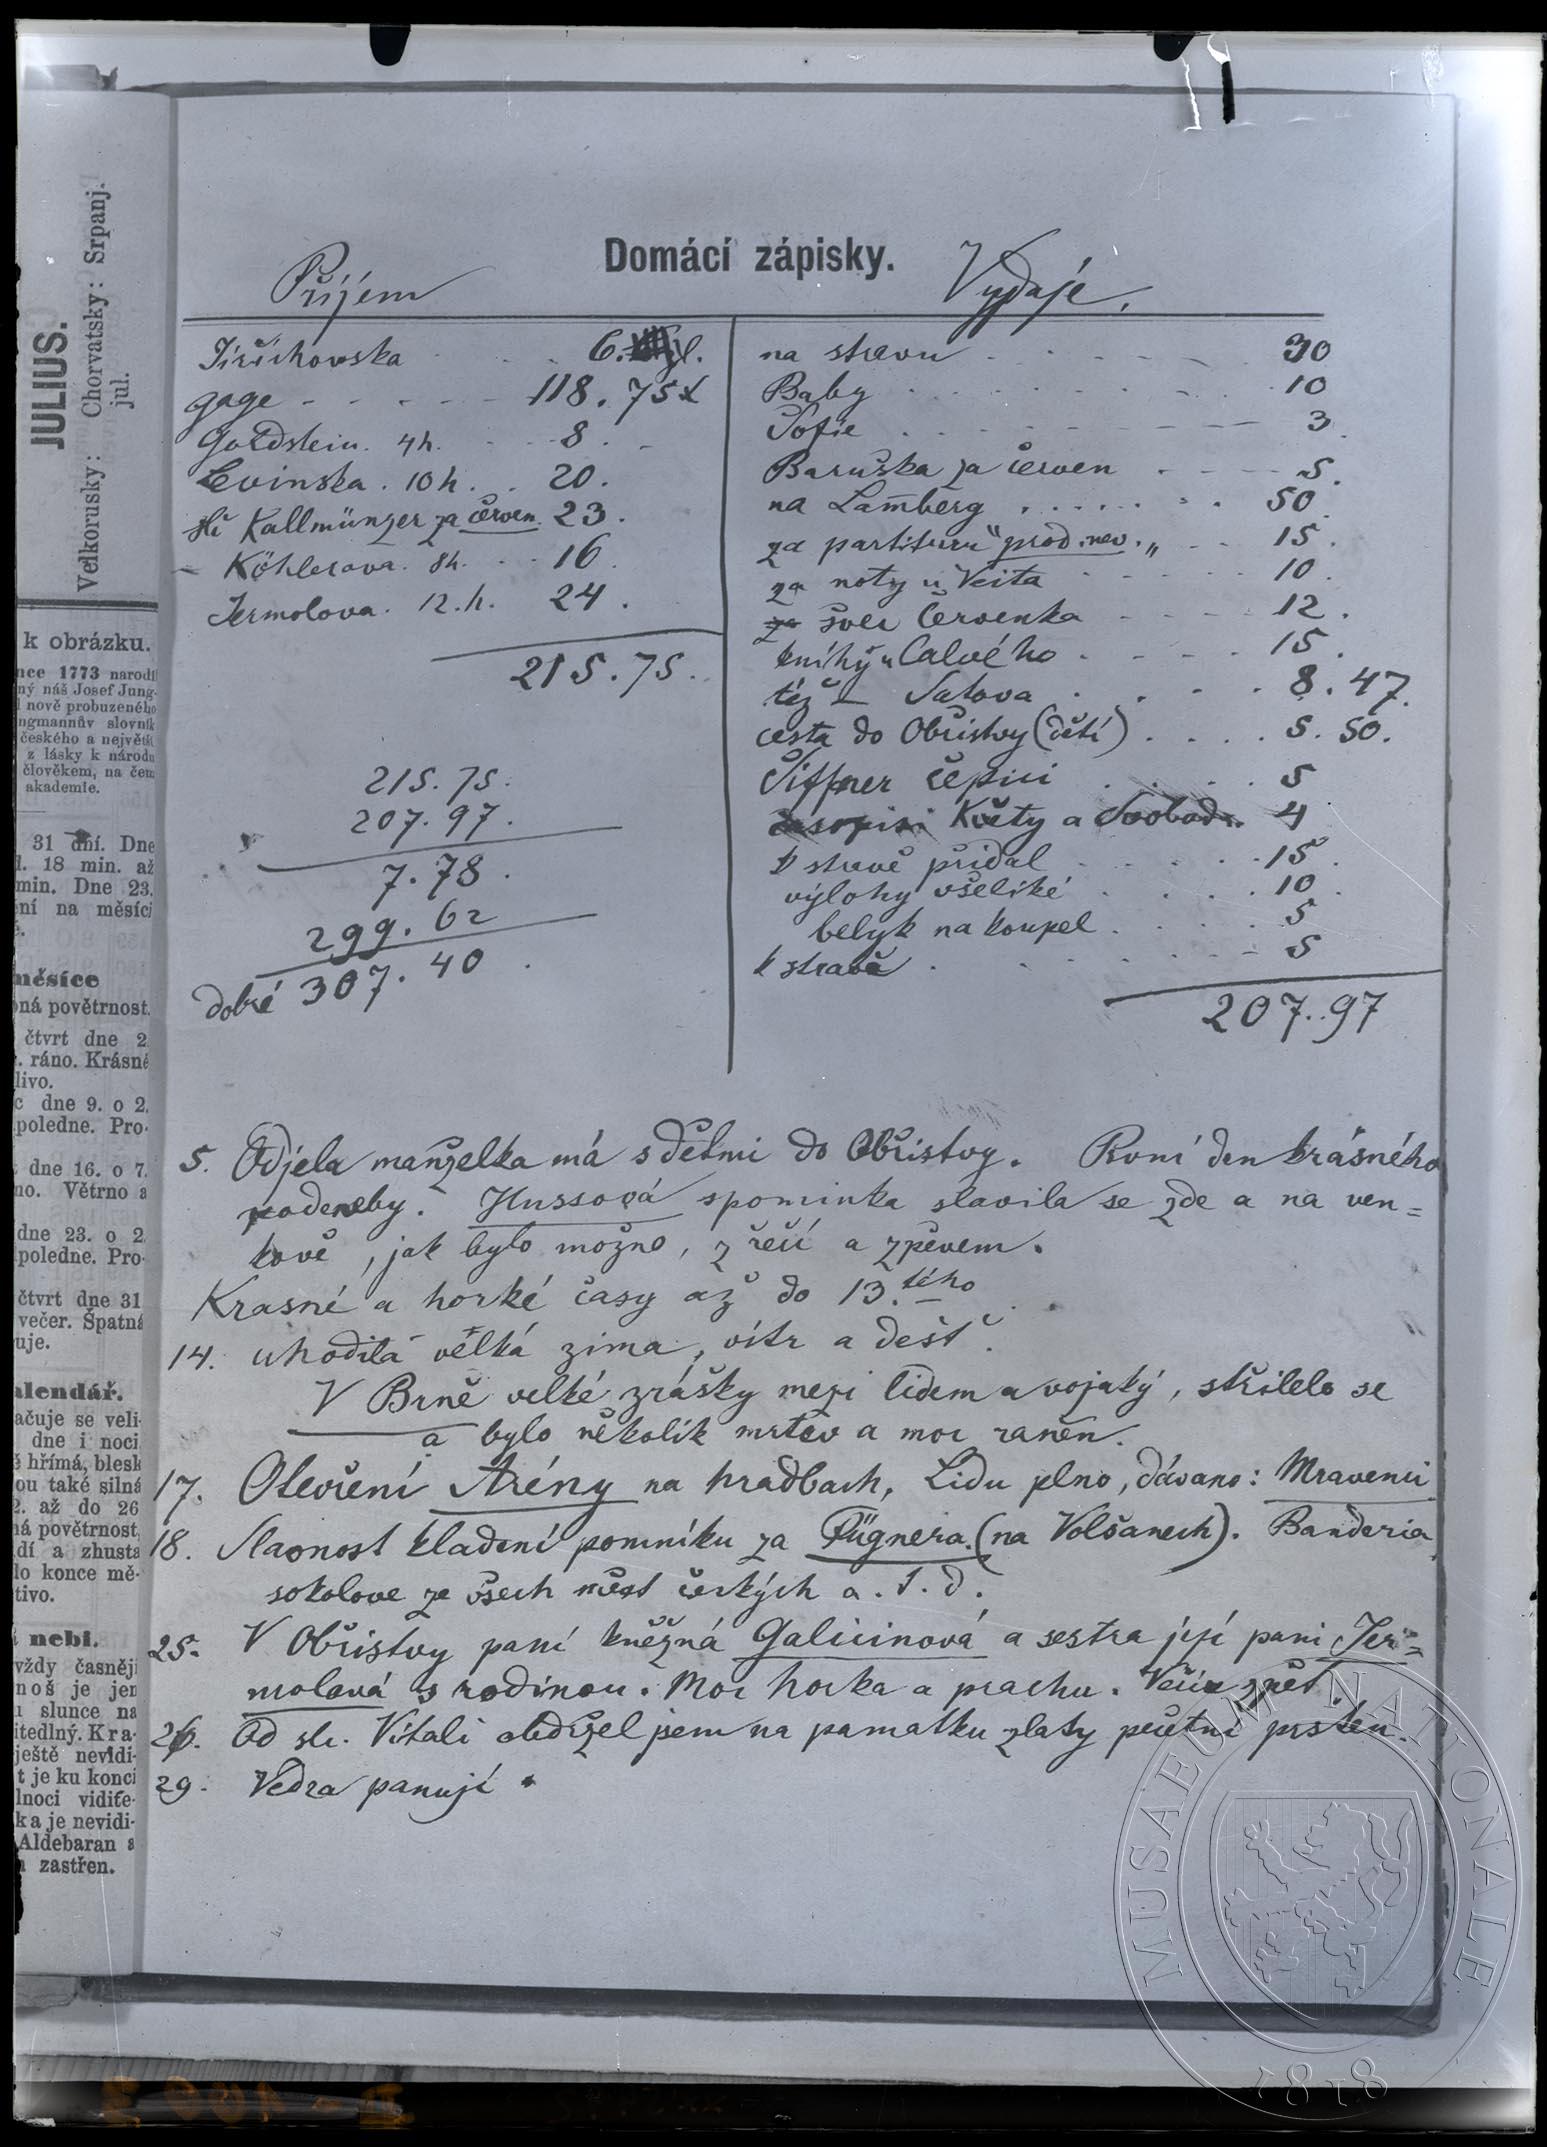 JULIUS.
Velkorusky: Chorvatsky: Srpanj.
jul.
k obrázku.
nce 1773 narodil
ný náš Josef Jung-
l nově probuzeného
ngmannův slovník
českého a největší
z lásky k národu
člověkem, na čem
akademie.
31 dní. Dne
l. 18 min. až
min. Dne 23.
ení na měsíci
měsíce
ná povětrnost.
čtvrt dne 2
. ráno. Krásné
livo.
c dne 9. o 2.
poledne. Pro-
dne 16. o 7.
no. Větrno a
dne 23. o 2
poledne. Pro-
čtvrt dne 31
večer. Špatná
uje.
alendář.
ačuje se veli-
dne i noci
ě hřímá, blesk
ou také silná
2. až do 26
ná povětrnost,
dí a zhusta
lo konce mě-
tivo.
nebi.
vždy časněji
noš je jen
u slunce na
itedlný. Kra-
ještě nevidi-
t je ku konci
lnoci vidite-
ka je nevidi-
Aldebaran a
zastřen.
Domácí zápisky.
Příjem
Jiřichovska 6. zl.
gage - - - - - 118. 75 x
Goldstein. 4h. - - 8.
Levinska. 10h. . 20.
Kallmünzer za červen. 23.
Köhlerova. 8h. - - 16.
Jermolova. 12.h. 24.
215.75.
215.75.
207.97.
7.78.
299.62
dobré 307.40.
Vydaje.
na stravu 30
Baby 10
Sofie 3.
Baruška za červen - - - 5.
na Lam̄berg . . . . . . 50.
za partituru "prod. nev." - - 15.
za noty u Veita 10.
švec Červenka 12.
knihy u Calvého 15.
též - Satova 8.47.
cesta do Obřistvy (děti) . . . . 5.50.
Šiffner čepici 5
časopisi Květy a Svobod. 4
k stravě přidal 15.
výlohy všeliké 10.
belyk na koupel 5
k stravě 5
207..97
5. Odjela manželka má s dětmi do Obřistvy. První den krásného
podeneby. Hussová spominka slavila se zde a na ven=
kově, jak bylo možno, z řečí a zpěvem.
Krasné a horké časy až do 13.tého
14. uhodila velká zima, vítr a dešť.
V Brně velké zrášky mezi lidem a vojaky, střilelo se
a bylo několik mrtev a moc raněn.
17. Otevření Arény na hradbach, Lidu plno, dávano: Mravenci
18. Slavnost kladení pomníku za Fügnera (na Volšanech). Banderia,
sokolove ze všech měst českých a. t. d.
25. V Obřistvy paní kněžná Galicinová a sestra její pani Jer=
molová s rodinou. Moc horka a prachu. Večír zpět.
26. Od sl. Vitali obdržel jsem na pamatku zlaty pečetní prsten.
29. Vedra panují.
MUSAEUM NATIONALE
1818